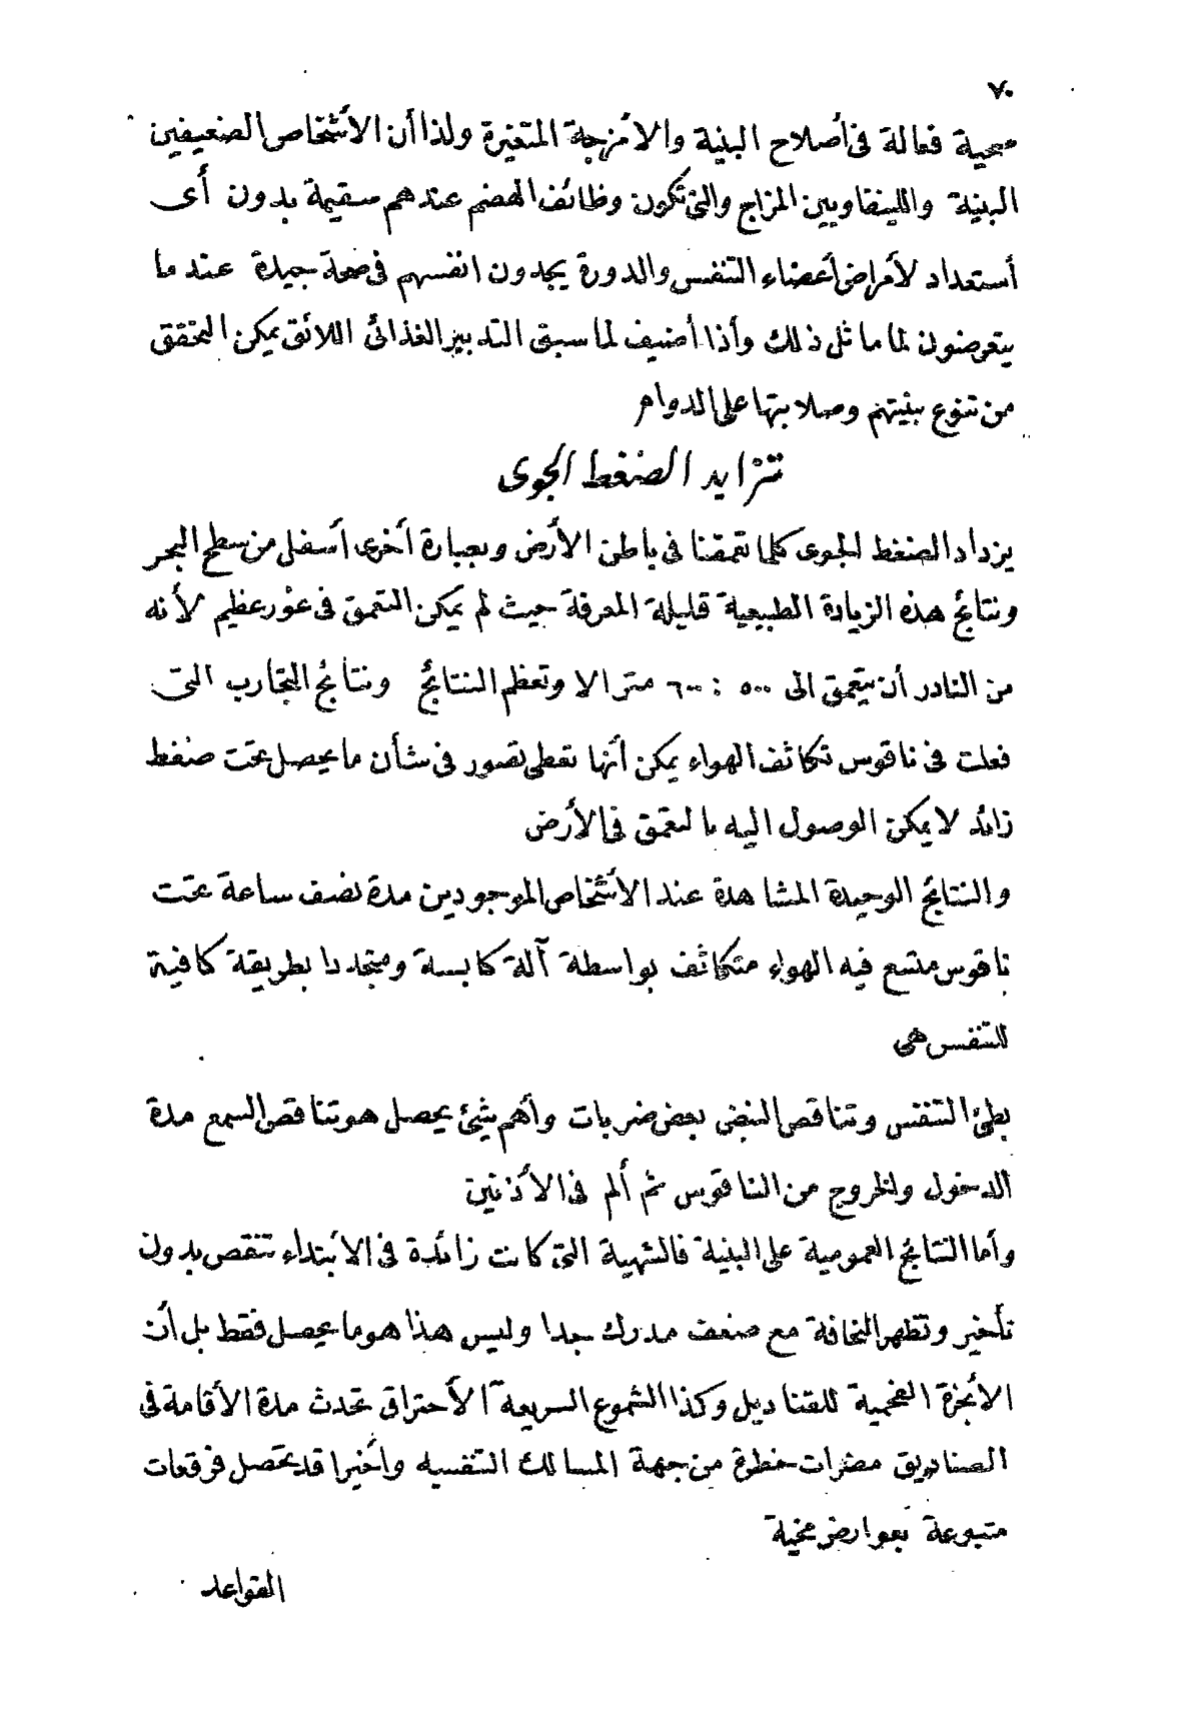 ٧٠
صحية فعالة فى أصلاح البنية والأمزجة المتغيرة ولذا أن الأشخاص الضعيفين
البنية واللينفاويين المزاج والتى تكون وظائف الهضم عندهم سقيمة بدون أى
أستعداد لأمراض أعضاء التنفس والدورة يجدون انفسهم فى صحة جيدة عند ما
يتعرضون لما ماثل ذلك وأذا أضيف لما سبق التدبير الغذائى اللائق يمكن التحقق
من تنوع بنيتهم وصلابتها على الدوام
تزايد الضغط الجوى
يزداد الضغط الجوى كلما تعمقنا فى باطن الأرض وبعبارة أخرى أسفل من سطح البحر
ونتائج هذه الزيادة الطبيعية قليلة المعرفة حيث لم يمكن التعمق فى غور عظيم لأنه
من النادر أن يتعمق الى ٥٠٠ : ٦٠٠ مترا لا وتعظم النتائج ونتائج التجارب التى
فعلت فى ناقوس تكاثف الهواء يمكن أنها تعطى تصور فى شأن ما يحصل تحت ضغط
زائد لا يمكن الوصول اليه بالتعمق فى الأرض
والنتائج الوحيدة المشاهدة عند الأشخاص الموجودين مدة نصف ساعة تحت
ناقوس متسع فيه الهواء متكاثف بواسطة آلة كابسة ومتجددا بطريقة كافية
للتنفس هى
بطئ التنفس وتناقص النبض بعض ضربات وأهم شئ يحصل هو تناقص السمع مدة
الدخول والخروج من الناقوس ثم ألم فى الأذنين
وأما النتائج العمومية على البنية فالشهية التى كانت زائدة فى الأبتداء تنقص بدون
تأخير وتظهر النحافة مع ضعف مدرك جدا وليس هذا هو ما يحصل فقط بل أن
الأبخرة الفحمية للقناديل وكذا الشموع السريعة الأحتراق تحدث مدة الأقامة فى
الصناديق مضرات خطرة من جهة المسالك التنفسيه وأخيرا قد تحصل فرقعات
متبوعة بعوارض مخية
القواعد